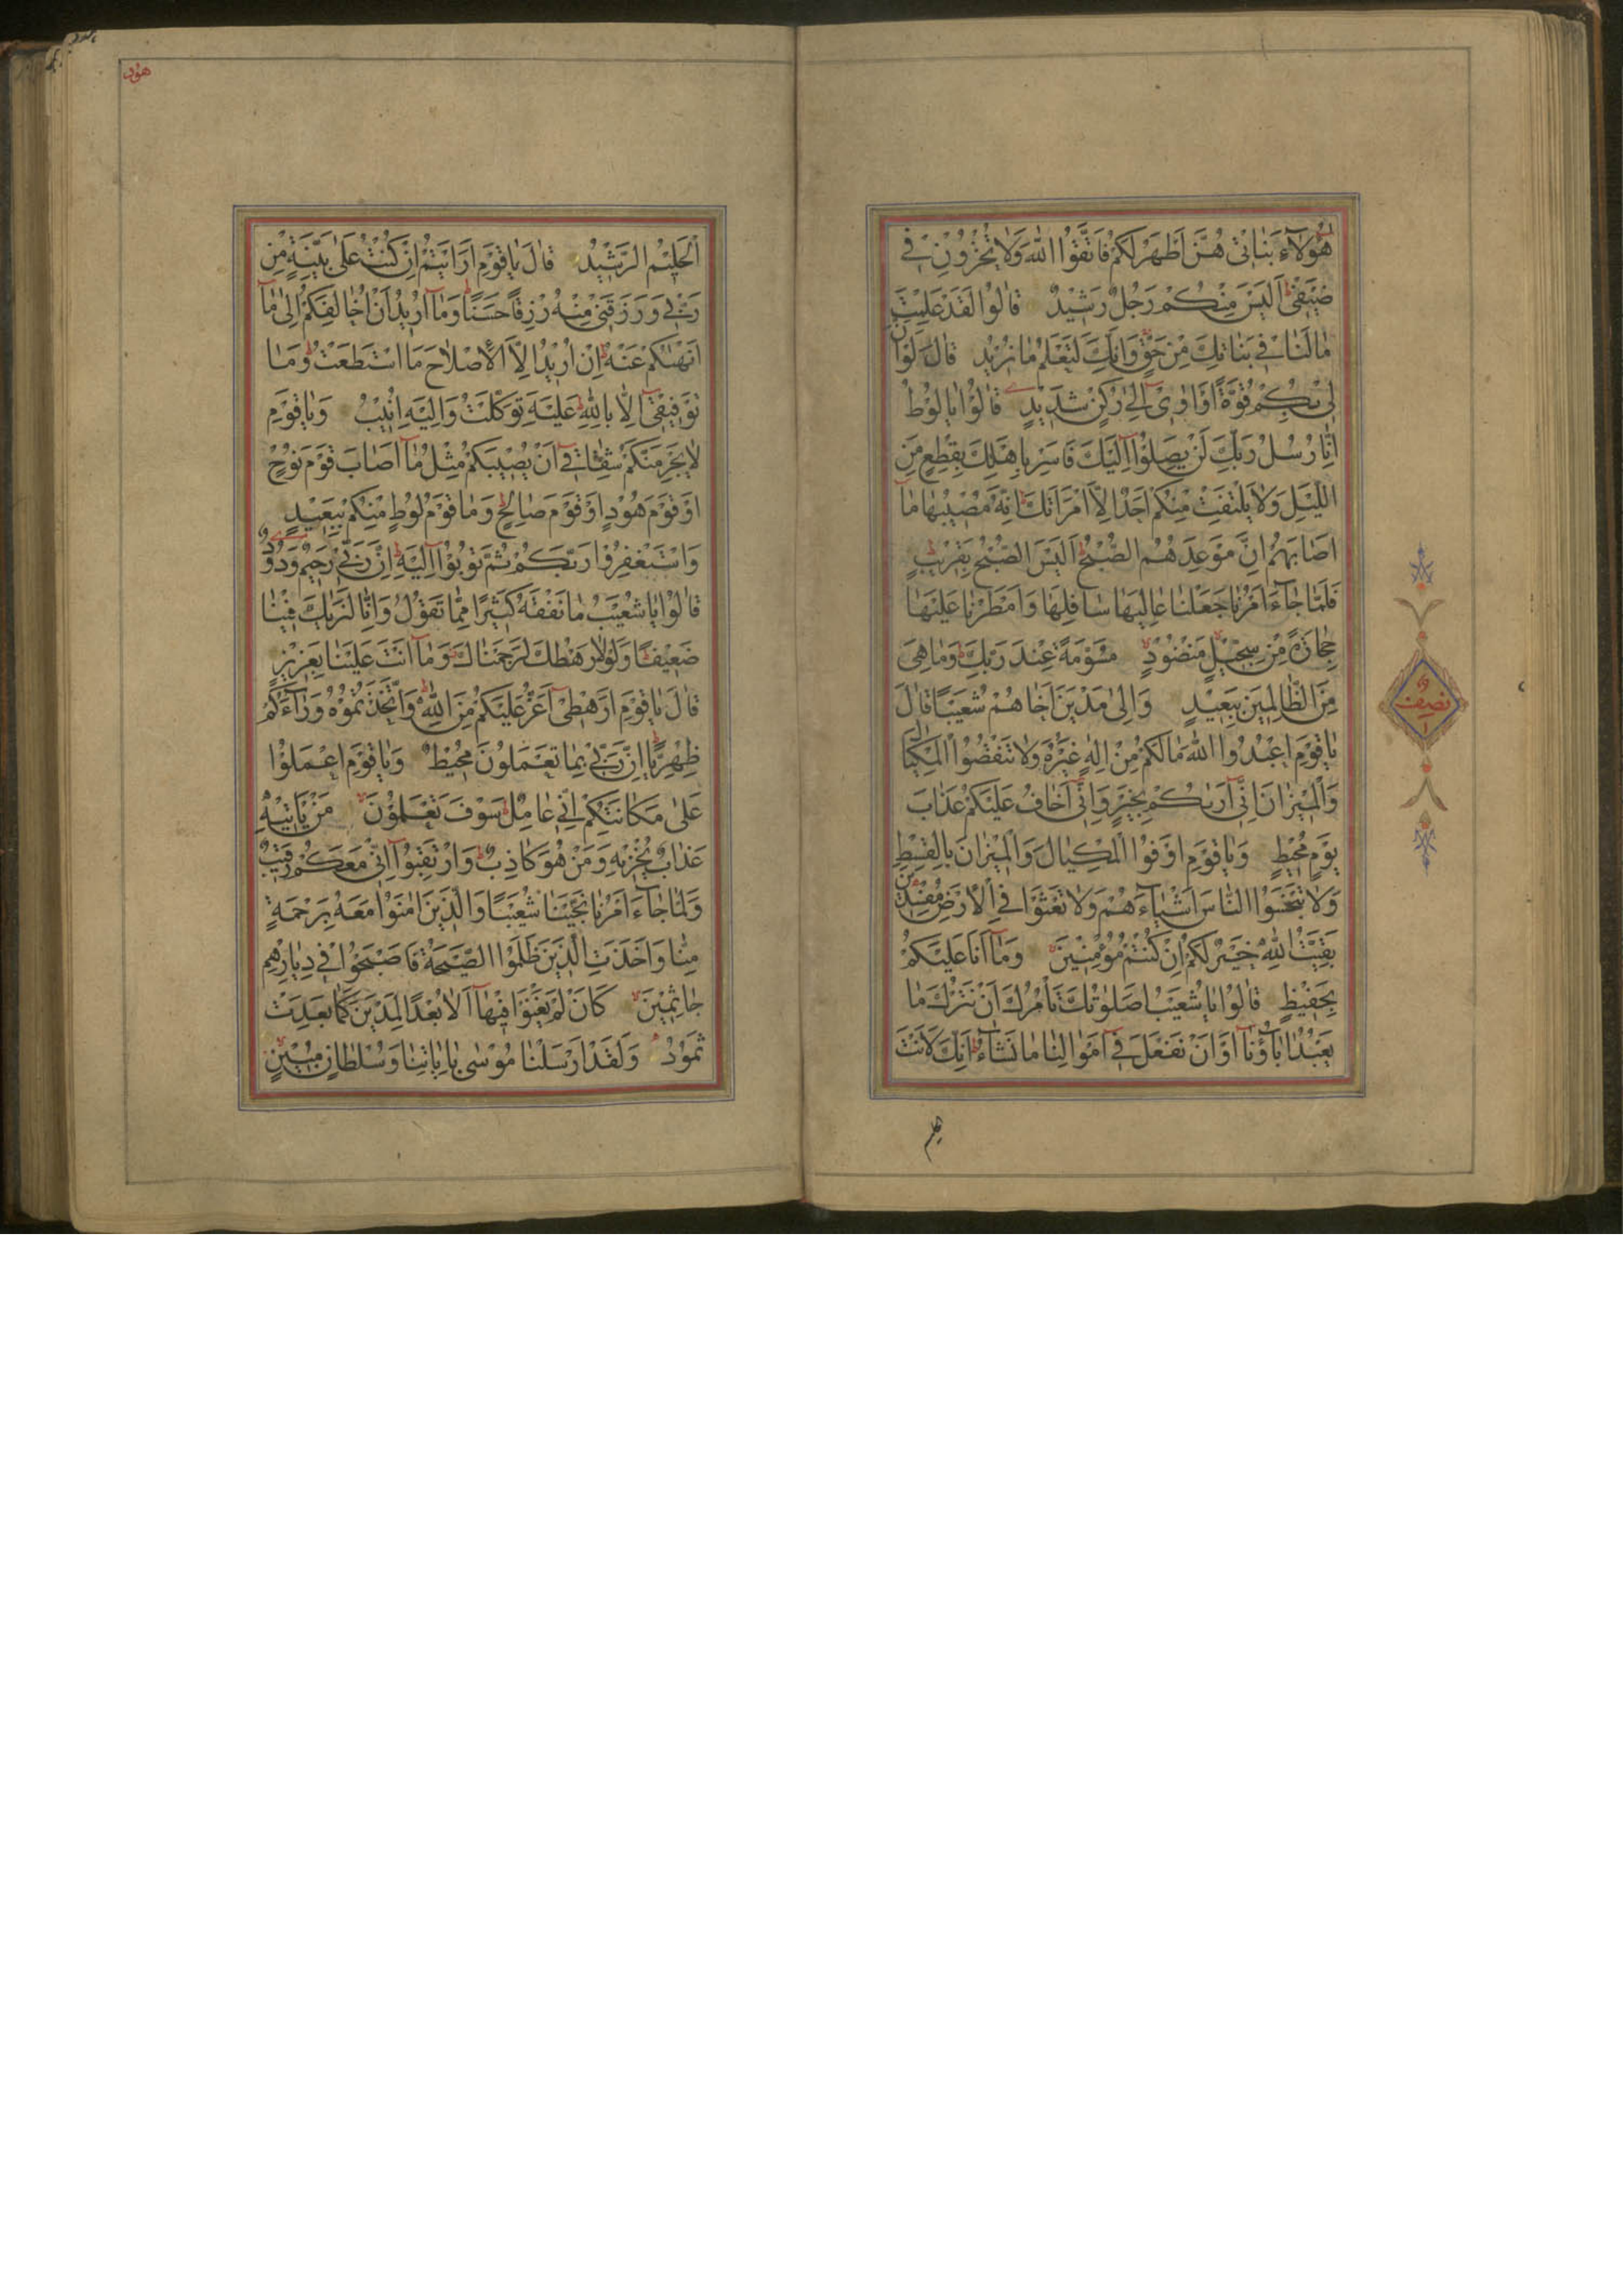 هٰؤُلَاءِ بَنَاتِي هُنَّ أَطْهَرُ لَكُمْ فَاتَّقُوا اللهَ وَلَا تُخْزُونِ فِي
ضَيْفِي اَلَيْسَ مِنْكُمْ رَجُلٌ رَشِيدٌ قَالُوا لَقَدْ عَلِمْتَ
مَا لَنَا فِي بَنَاتِكَ مِنْ حَقٍّ وَاِنَّكَ لَتَعْلَمُ مَا نُرِيدُ قَالَ لَوْ اَنَّ
لِي بِكُمْ قُوَّةً اَوْ اٰوِي اِلٰى رُكْنٍ شَدِيدٍ قَالُوا يَا لُوطُ
اِنَّا رُسُلُ رَبِّكَ لَنْ يَصِلُوا اِلَيْكَ فَاَسْرِ بِاَهْلِكَ بِقِطْعٍ مِنَ
اللَّيْلِ وَلَا يَلْتَفِتْ مِنْكُمْ اَحَدٌ اِلَّا امْرَاَتَكَ اِنَّهُ مُصِيبُهَا مَا
اَصَابَهُمْ اِنَّ مَوْعِدَهُمُ الصُّبْحُ اَلَيْسَ الصُّبْحُ بِقَرِيبٍ
فَلَمَّا جَاءَ اَمْرُنَا جَعَلْنَا عَالِيَهَا سَافِلَهَا وَاَمْطَرْنَا عَلَيْهَا
حِجَارَةً مِنْ سِجِّيلٍ مَنْضُودٍ مُسَوَّمَةً عِنْدَ رَبِّكَ وَمَا هِيَ
مِنَ الظَّالِمِينَ بِبَعِيدٍ وَاِلٰى مَدْيَنَ اَخَاهُمْ شُعَيْبًا قَالَ
يَا قَوْمِ اعْبُدُوا اللهَ مَا لَكُمْ مِنْ اِلٰهٍ غَيْرُهُ وَلَا تَنْقُصُوا الْمِكْيَالَ
وَالْمِيزَانَ اِنِّي اَرٰيكُمْ بِخَيْرٍ وَاِنِّي اَخَافُ عَلَيْكُمْ عَذَابَ
يَوْمٍ مُحِيطٍ وَيَا قَوْمِ اَوْفُوا الْمِكْيَالَ وَالْمِيزَانَ بِالْقِسْطِ
وَلَا تَبْخَسُوا النَّاسَ اَشْيَاءَهُمْ وَلَا تَعْثَوْا فِي الْاَرْضِ مُفْسِدِينَ
بَقِيَّتُ اللهِ خَيْرٌ لَكُمْ اِنْ كُنْتُمْ مُؤْمِنِينَ وَمَا اَنَا عَلَيْكُمْ
بِحَفِيظٍ قَالُوا يَا شُعَيْبُ اَصَلٰوتُكَ تَأْمُرُكَ اَنْ نَتْرُكَ مَا
يَعْبُدُ اٰبَاؤُنَا اَوْ اَنْ نَفْعَلَ فِي اَمْوَالِنَا مَا نَشَاءُ اِنَّكَ لَاَنْتَ
نصف
هود
الْحَلِيمُ الرَّشِيدُ قَالَ يَا قَوْمِ اَرَاَيْتُمْ اِنْ كُنْتُ عَلٰى بَيِّنَةٍ مِنْ
رَبِّي وَرَزَقَنِي مِنْهُ رِزْقًا حَسَنًا وَمَا اُرِيدُ اَنْ اُخَالِفَكُمْ اِلٰى مَا
اَنْهٰيكُمْ عَنْهُ اِنْ اُرِيدُ اِلَّا الْاِصْلَاحَ مَا اسْتَطَعْتُ وَمَا
تَوْفِيقِي اِلَّا بِاللهِ عَلَيْهِ تَوَكَّلْتُ وَاِلَيْهِ اُنِيبُ وَيَا قَوْمِ
لَا يَجْرِمَنَّكُمْ شِقَاقِي اَنْ يُصِيبَكُمْ مِثْلُ مَا اَصَابَ قَوْمَ نُوحٍ
اَوْ قَوْمَ هُودٍ اَوْ قَوْمَ صَالِحٍ وَمَا قَوْمُ لُوطٍ مِنْكُمْ بِبَعِيدٍ
وَاسْتَغْفِرُوا رَبَّكُمْ ثُمَّ تُوبُوا اِلَيْهِ اِنَّ رَبِّي رَحِيمٌ وَدُودٌ
قَالُوا يَا شُعَيْبُ مَا نَفْقَهُ كَثِيرًا مِمَّا تَقُولُ وَاِنَّا لَنَرٰيكَ فِينَا
ضَعِيفًا وَلَوْلَا رَهْطُكَ لَرَجَمْنَاكَ وَمَا اَنْتَ عَلَيْنَا بِعَزِيزٍ
قَالَ يَا قَوْمِ اَرَهْطِي اَعَزُّ عَلَيْكُمْ مِنَ اللهِ وَاتَّخَذْتُمُوهُ وَرَاءَكُمْ
ظِهْرِيًّا اِنَّ رَبِّي بِمَا تَعْمَلُونَ مُحِيطٌ وَيَا قَوْمِ اعْمَلُوا
عَلٰى مَكَانَتِكُمْ اِنِّي عَامِلٌ سَوْفَ تَعْلَمُونَ مَنْ يَأْتِيهِ
عَذَابٌ يُخْزِيهِ وَمَنْ هُوَ كَاذِبٌ وَارْتَقِبُوا اِنِّي مَعَكُمْ رَقِيبٌ
وَلَمَّا جَاءَ اَمْرُنَا نَجَّيْنَا شُعَيْبًا وَالَّذِينَ اٰمَنُوا مَعَهُ بِرَحْمَةٍ
مِنَّا وَاَخَذَتِ الَّذِينَ ظَلَمُوا الصَّيْحَةُ فَاَصْبَحُوا فِي دِيَارِهِمْ
جَاثِمِينَ كَاَنْ لَمْ يَغْنَوْا فِيهَا اَلَا بُعْدًا لِمَدْيَنَ كَمَا بَعِدَتْ
ثَمُودُ وَلَقَدْ اَرْسَلْنَا مُوسٰى بِاٰيَاتِنَا وَسُلْطَانٍ مُبِينٍ